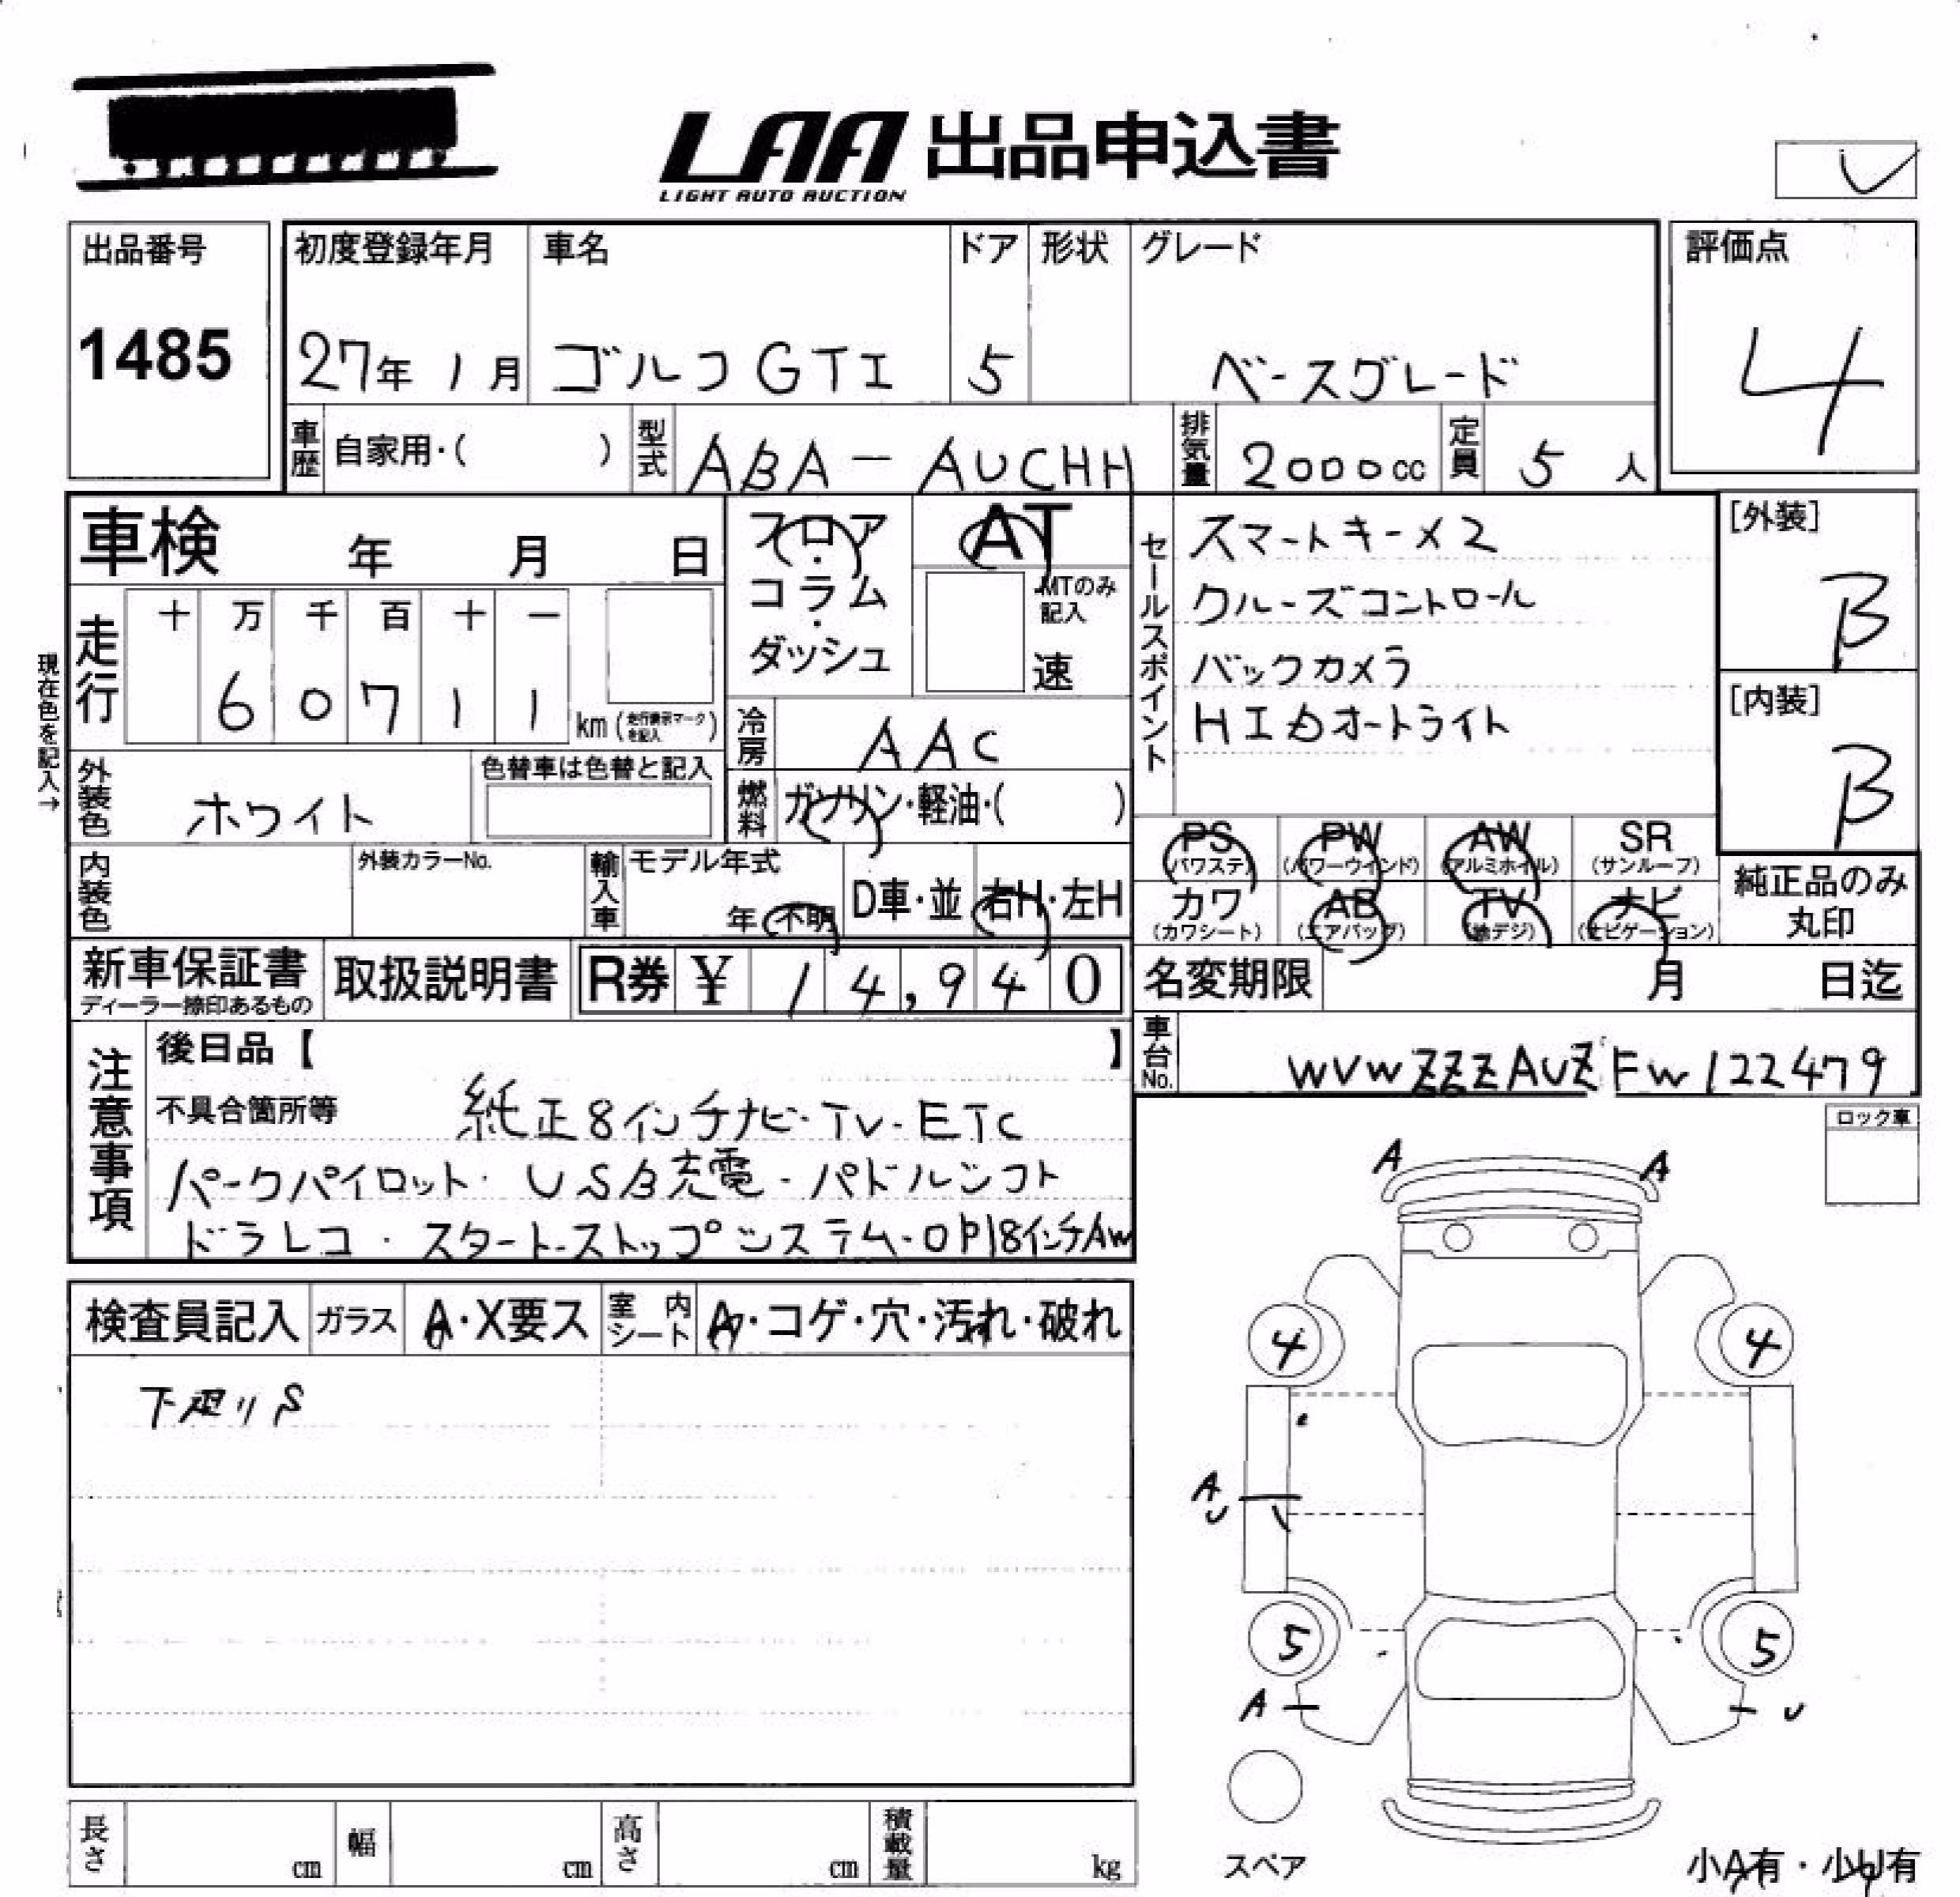 LAA 出品申込書
LIGHT AUTO AUCTION
出品番号
1485
初度登録年月
27年 1月
車名
ゴルフ GTI
ドア
5
形状
グレード
ベースグレード
評価点
4
車歴 自家用・( )
型式 ABA - AUCHH
排気量 2000cc
定員 5人
車検 年 月 日
フロア・コラム・ダッシュ
AT
MTのみ記入
速
セールスポイント
スマートキー×2
クルーズコントロール
バックカメラ
HIDオートライト
[外装]
B
[内装]
B
現在色を記入→
走行
十 万 千 百 十 一
6 0 7 1 1 km (走行表示マークを記入)
冷房 AAC
外装色 ホワイト
色替車は色替と記入
燃料 ガソリン・軽油・( )
PS (パワステ) PW (パワーウインド) AW (アルミホイル) SR (サンルーフ)
カワ (カワシート) AB (エアバッグ) TV (地デジ) ナビ (ナビゲーション)
純正品のみ丸印
内装色
外装カラーNo.
輸入車 モデル年式
年 不明
D車・並
右H・左H
新車保証書
ディーラー捺印あるもの
取扱説明書
R券 ¥ 14,940
名変期限 月 日迄
車台No. WVWZZZAUZFW122479
注意事項
後日品【 】
不具合箇所等 純正8インチナビ・TV・ETC
パークパイロット・USB充電・パドルシフト
ドラレコ・スタートストップシステム・OP18インチAW
ロック車
検査員記入 ガラス A・X要ス 室内シート A・コゲ・穴・汚れ・破れ
下廻りS
A A
4 4
A
U
5 5
A U
スペア
小A有・小U有
長さ cm 幅 cm 高さ cm 積載量 kg